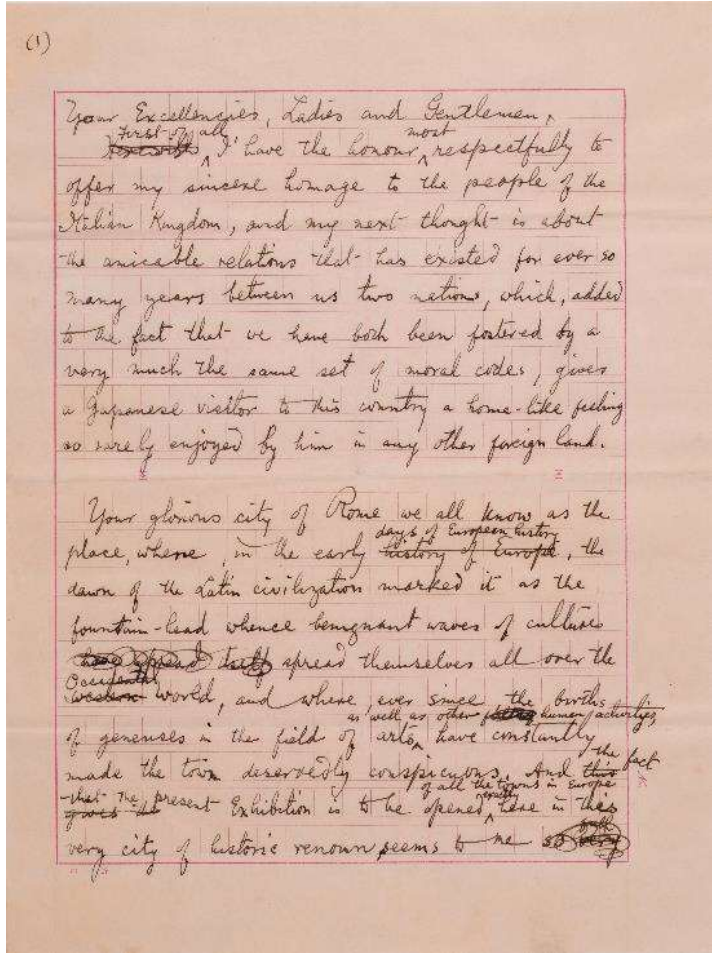 (1)
Your Excellencies, Ladies and Gentlemen,
First of all
I have the honour most respectfully to
offer my sincere homage to the people of the
Italian Kingdom, and my next thought is about
the amicable relations that has existed for ever so
many years between us two nations, which, added
to the fact that we have both been fostered by a
very much the same set of moral codes, gives
a Japanese visitor to this country a home-like feeling
so rarely enjoyed by him in any other foreign land.
Your glorious city of Rome we all know as the
days of European history
place, where, in the early history of Europe, the
dawn of the Latin civilization marked it as the
fountain-head whence benignant waves of culture
have spread itself spread themselves all over the
Occidental
western world, and where, ever since the births
as well as other human activities
of geneuses in the field of arts, have constantly
the fact
made the town deservedly conspicuous. And this
of all the towns in Europe
that the present Exhibition is to be opened here in this
gives the
very city of historic renoun seems to me so very